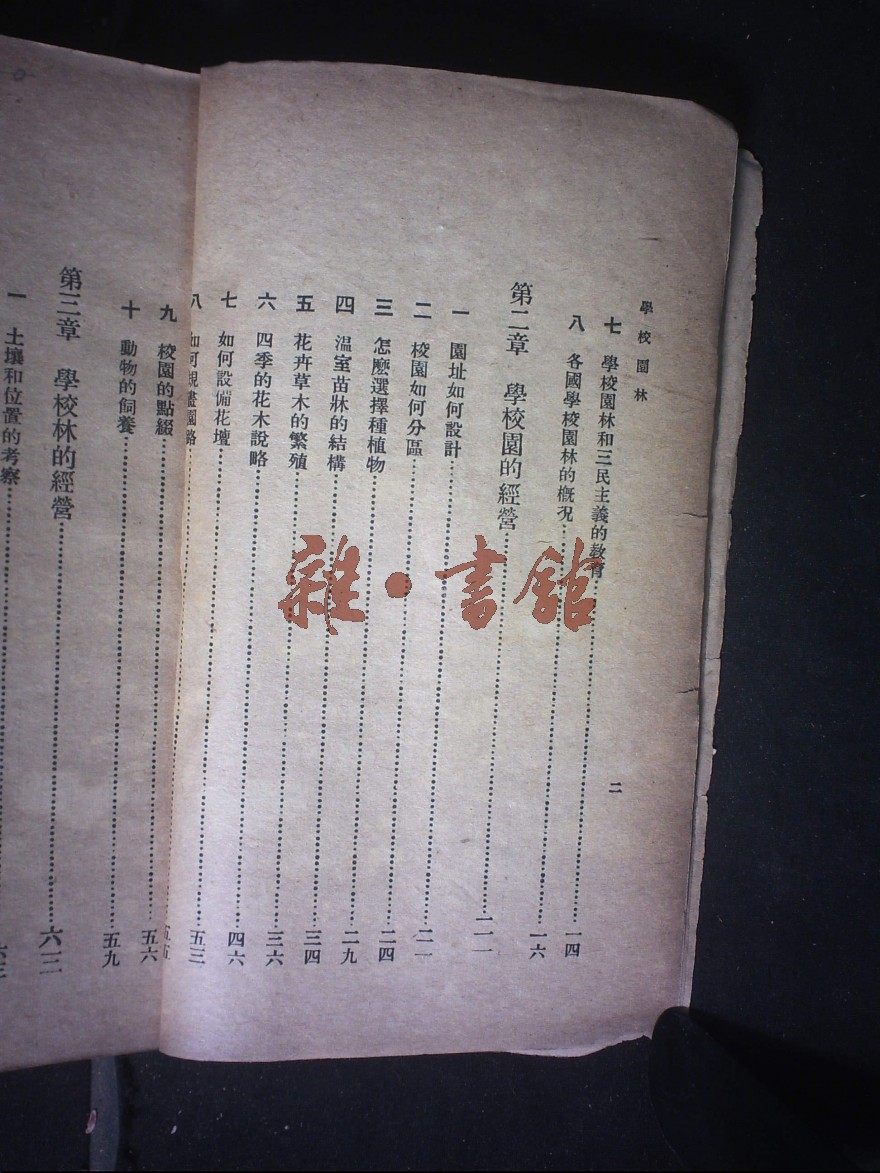 學校園林
二
七 學校園林和三民主義的教育……一四
八 各國學校園林的概況……一六
第二章 學校園的經營……二一
一 園址如何設計……二一
二 校園如何分區……二四
三 怎麽選擇種植物……二九
四 温室苗牀的結構……三四
五 花卉草木的繁殖……三六
六 四季的花木說略……四六
七 如何設備花壇……五三
八 如何規畫園路……五五
九 校園的點綴……五六
十 動物的飼養……五九
第三章 學校林的經營……六三
一 土壤和位置的考察……六三
雜·書館